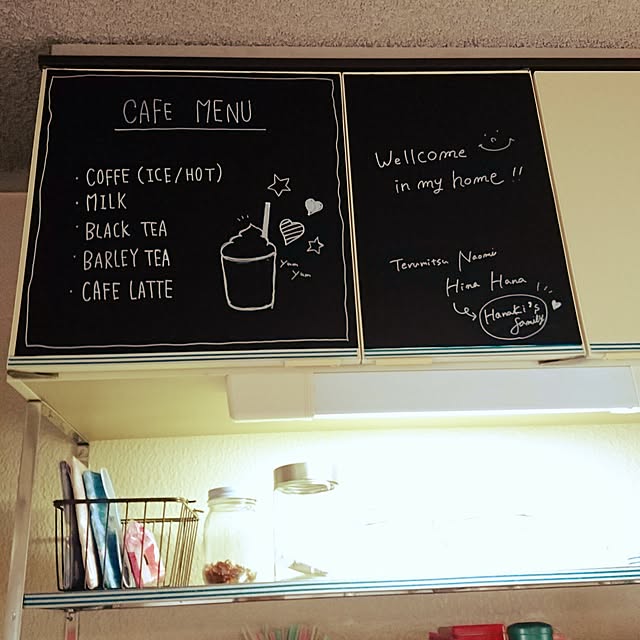 CAFE MENU
· COFFE (ICE/HOT)
· MILK
· BLACK TEA
· BARLEY TEA
· CAFE LATTE
Yum
Yum
Wellcome
in my home !!
Terumitsu Naomi
Hina Hana !!!
Hanaki's
family